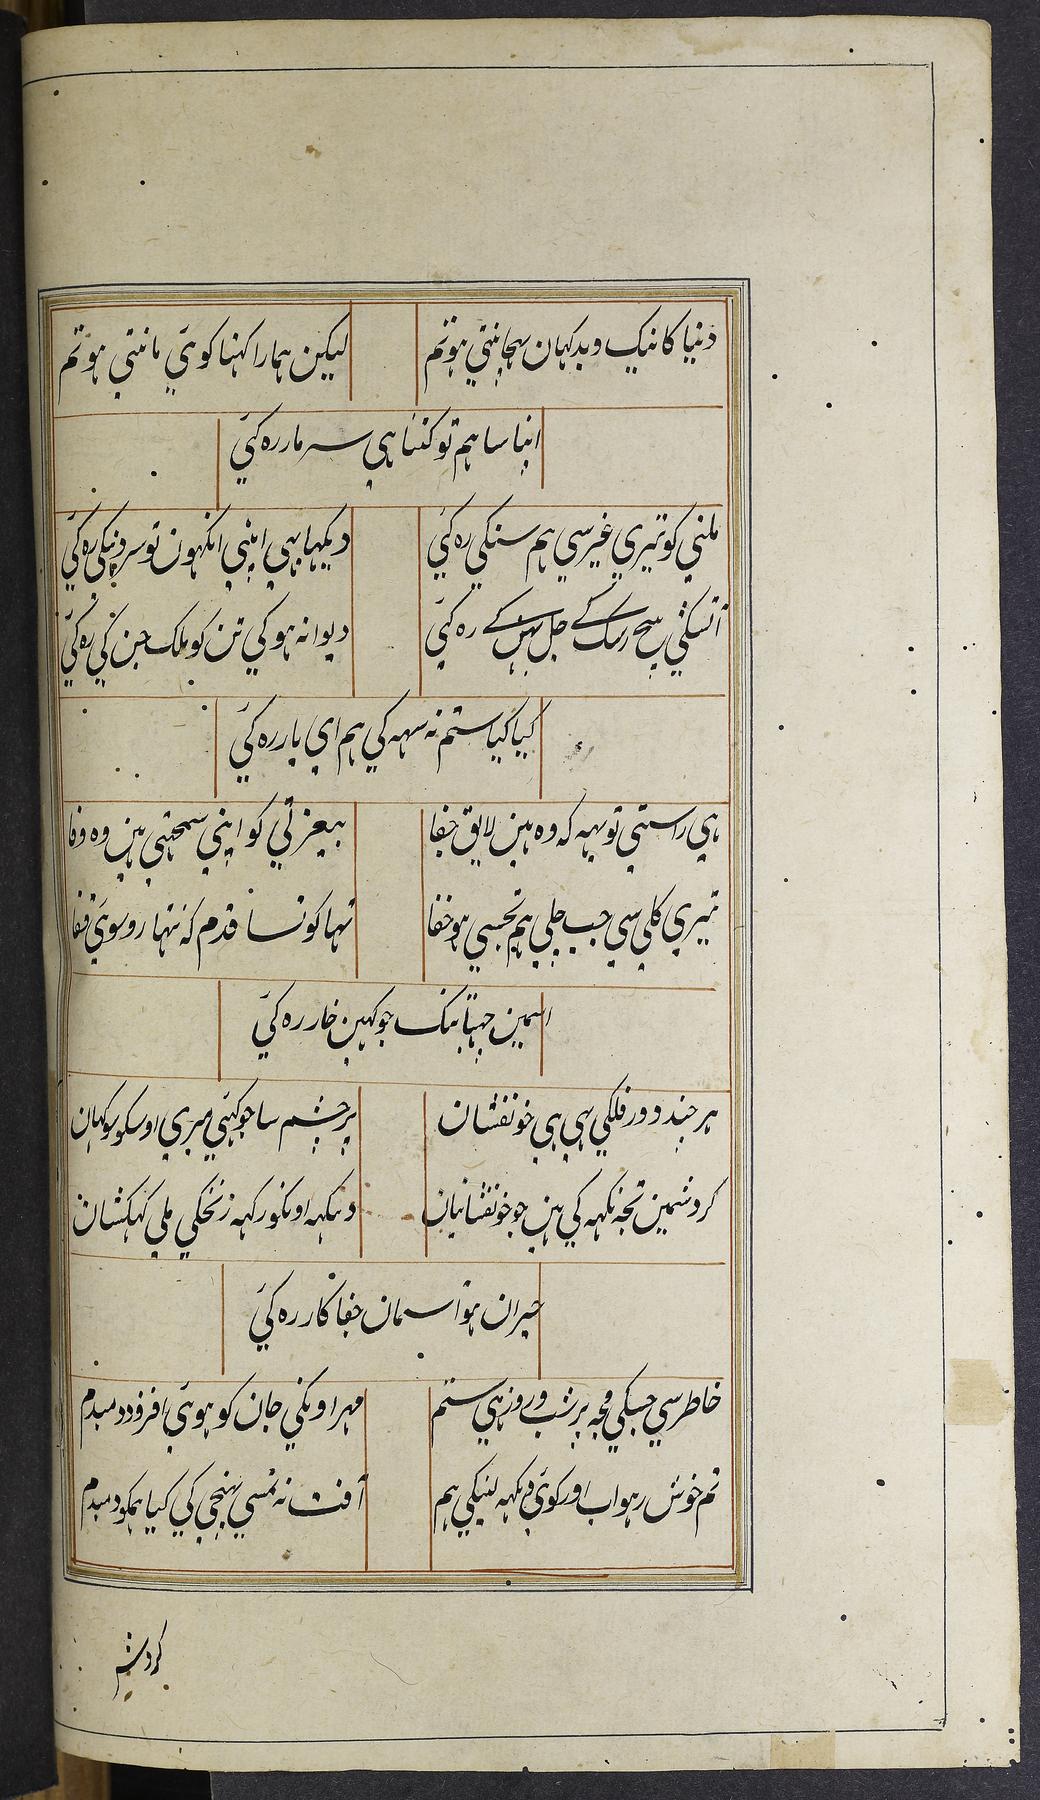 دنیا کا نیک و بد کہان پہچانتی ہو تم
لیکن ہمارا کہنا کوئی مانتی ہو تم
اپنا سا ہم تو کتنا ہی سر مار رہ کئی
ملنی کو تیری غیر سی ہم سنکی رہ کئی
دیکہا بہی اپنی انکہون تو سر رہ کئی
آتش رشک کے جل بہن کے رہ کئی
دیوانہ ہو کی تن کو ملک جن کی رہ کئی
کیا کیا ستم نہ سہہ کی ہم ای یار رہ کئی
ہی راستی تو یہہ کہ وہ ہین لایق جفا
بیعزتی کو اپنی سمجہتی ہین وہ وفا
تیری کلی سی جب چلی ہم تجسی ہو خفا
تہا کونسا قدم کہ نتہا رو سوئی قفا
اسمین جہبتا بنک جو کہین خار رہ کئی
ہر چند دور فلکی بہی ہی خونفشان
پر چشم سا جو کہئی میری اوسکو سو کہان
کردشمین تجہ نکہہ کی ہین جو خونفشانیان
دیکہہ اونکو رکہہ زنخکی ملی کہکشان
حیران ہو اسمان جفا کار رہ کئی
خاطر سی جسکی مجہ پر شب و روز ہی ستم
مہر اونکی جان کو ہوئی افزود دمبدم
تم خوش رہو اب اور کوئی دیکہہ لینکی ہم
آفت نہ تمسی پہنچی کی کیا ہمکو دمبدم
کردش